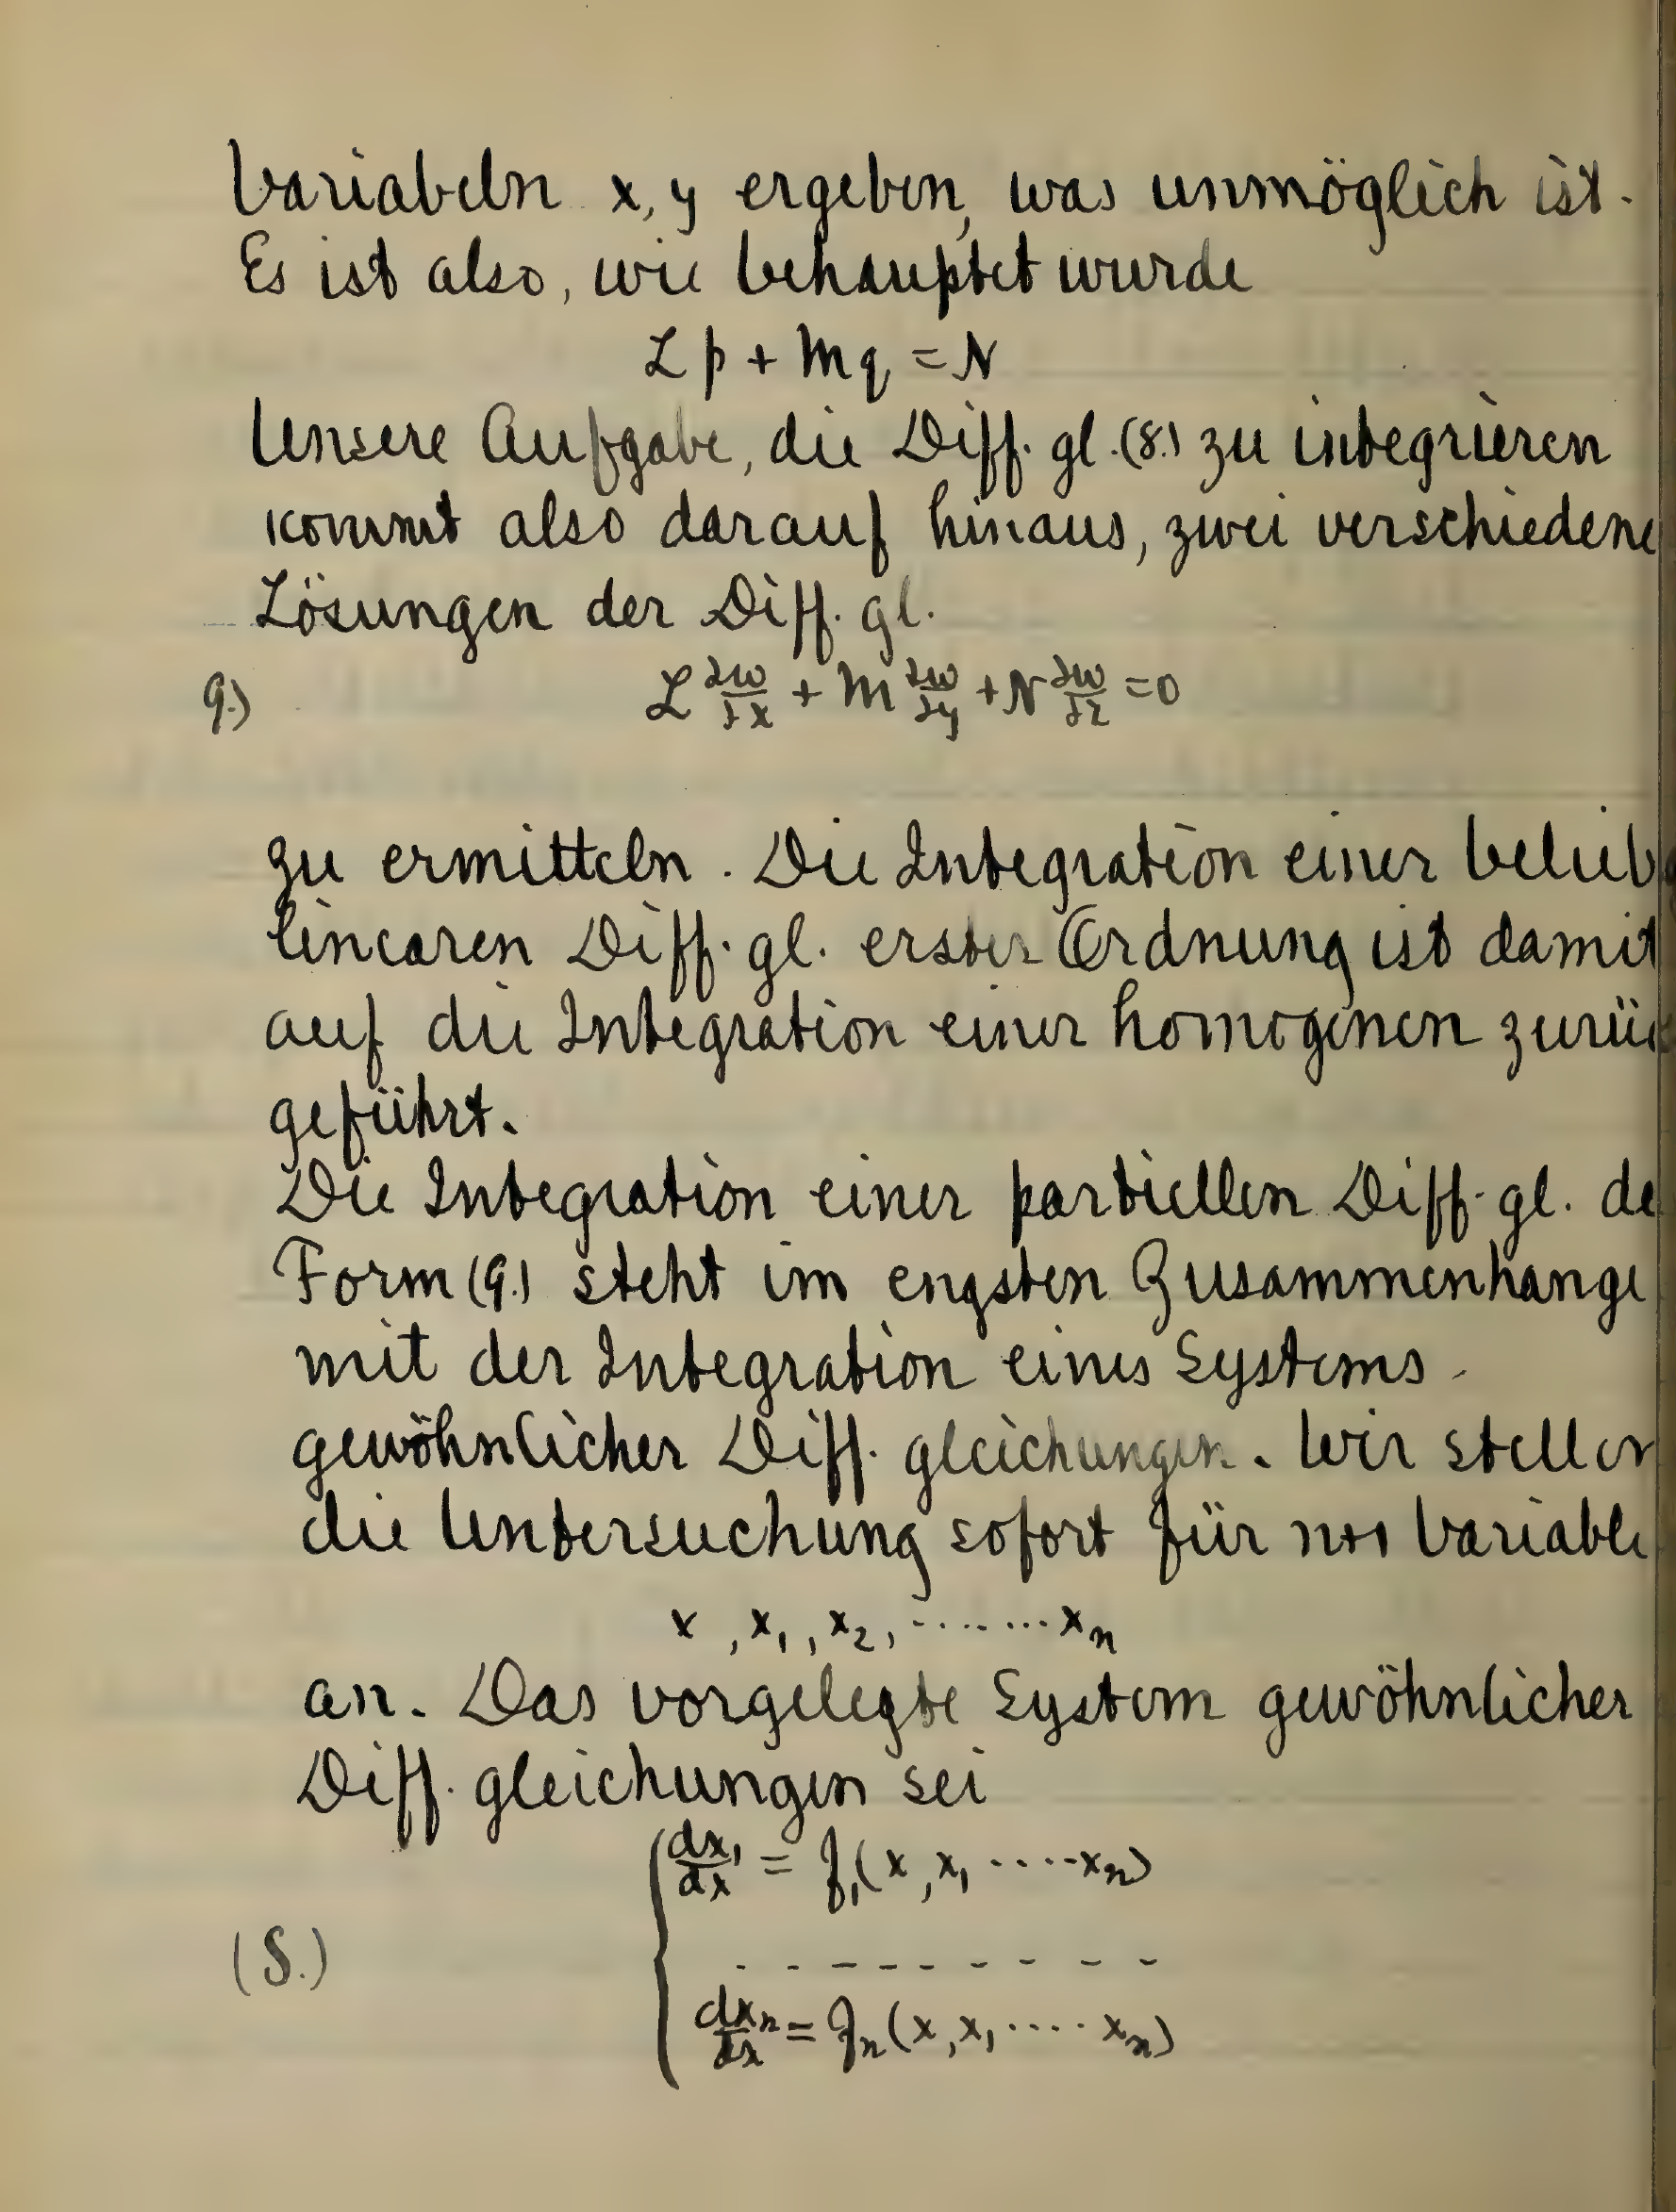 Variabeln x, y ergeben, was unmöglich ist.
Es ist also, wie behauptet wurde
Lp + Mq = N
Unsere Aufgabe, die Diff. gl. (8.) zu integrieren
kommt also darauf hinaus, zwei verschiedene
Lösungen der Diff. gl.
9.) L ∂w/∂x + M ∂w/∂y + N ∂w/∂z = 0
zu ermitteln. Die Integration einer belieb
linearen Diff. gl. erster Ordnung ist damit
auf die Integration einer homogenen zurüc
geführt.
Die Integration einer partiellen Diff. gl. de
Form (9.) steht im engsten Zusammenhange
mit der Integration eines Systems
gewöhnlicher Diff. gleichungen. Wir stellen
die Untersuchung sofort für n+1 Variable
x, x₁, x₂, ........ xₙ
an. Das vorgelegte System gewöhnlicher
Diff. gleichungen sei
dx₁/dx = f₁(x, x₁ ····· xₙ)
(S.) - - - - - - - - - -
dxₙ/dx = fₙ(x, x₁ ····· xₙ)